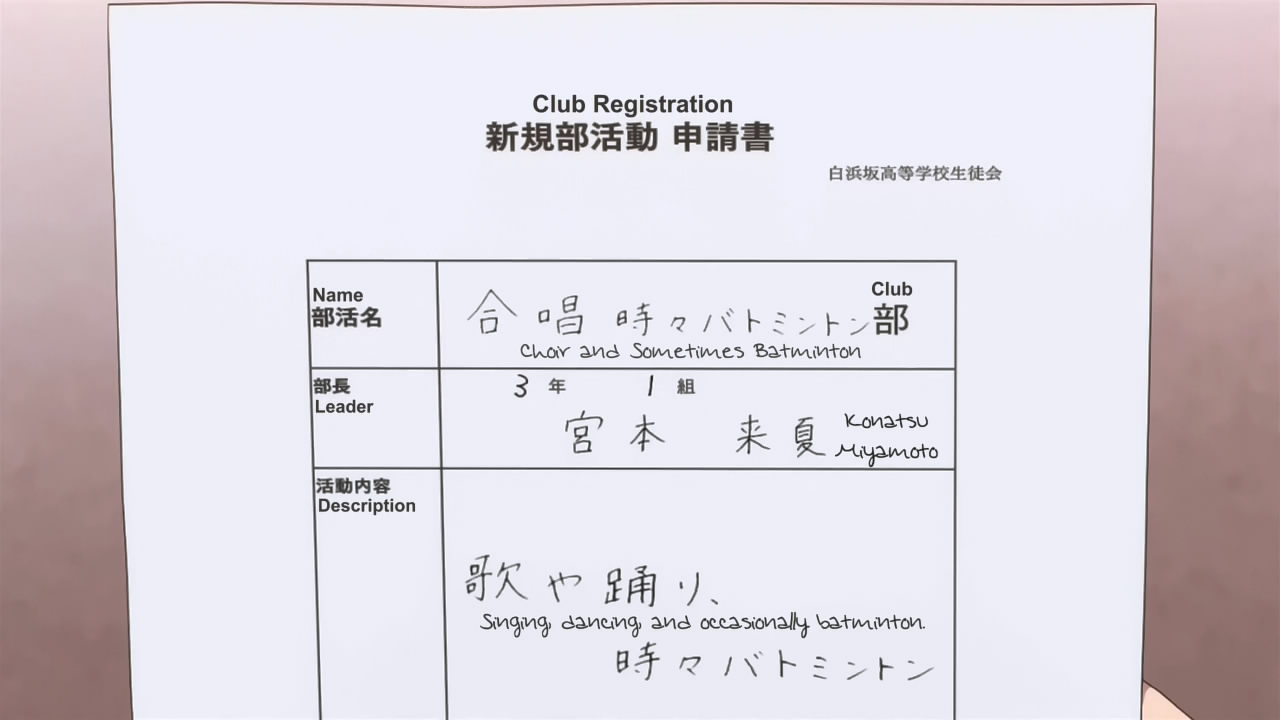 Club Registration
新規部活動 申請書
白浜坂高等学校生徒会
Name
部活名
合唱時々バトミントン
Club
部
Choir and Sometimes Batminton
部長
Leader
3年 1組
宮本 来夏
Konatsu
Miyamoto
活動内容
Description
歌や踊り、
Singing, dancing, and occasionally batminton.
時々バトミントン